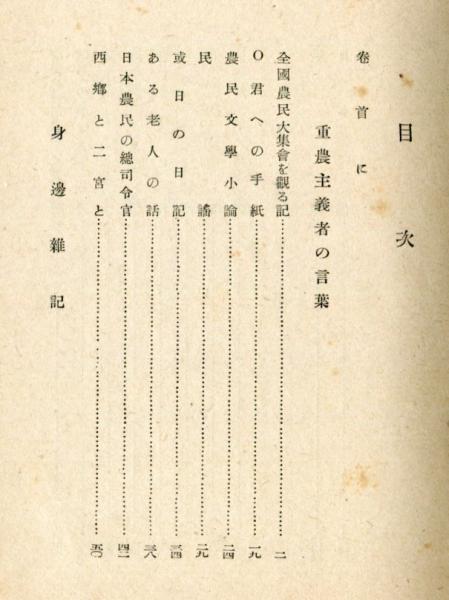 目次
卷首に
重農主義者の言葉
全國農民大集會を觀る記……二
O君への手紙……一九
農民文學小論……二四
民謠……二九
或日の日記……三四
ある老人の話……三八
日本農民の總司令官……四二
西鄕と二宮と……五〇
身邊雜記